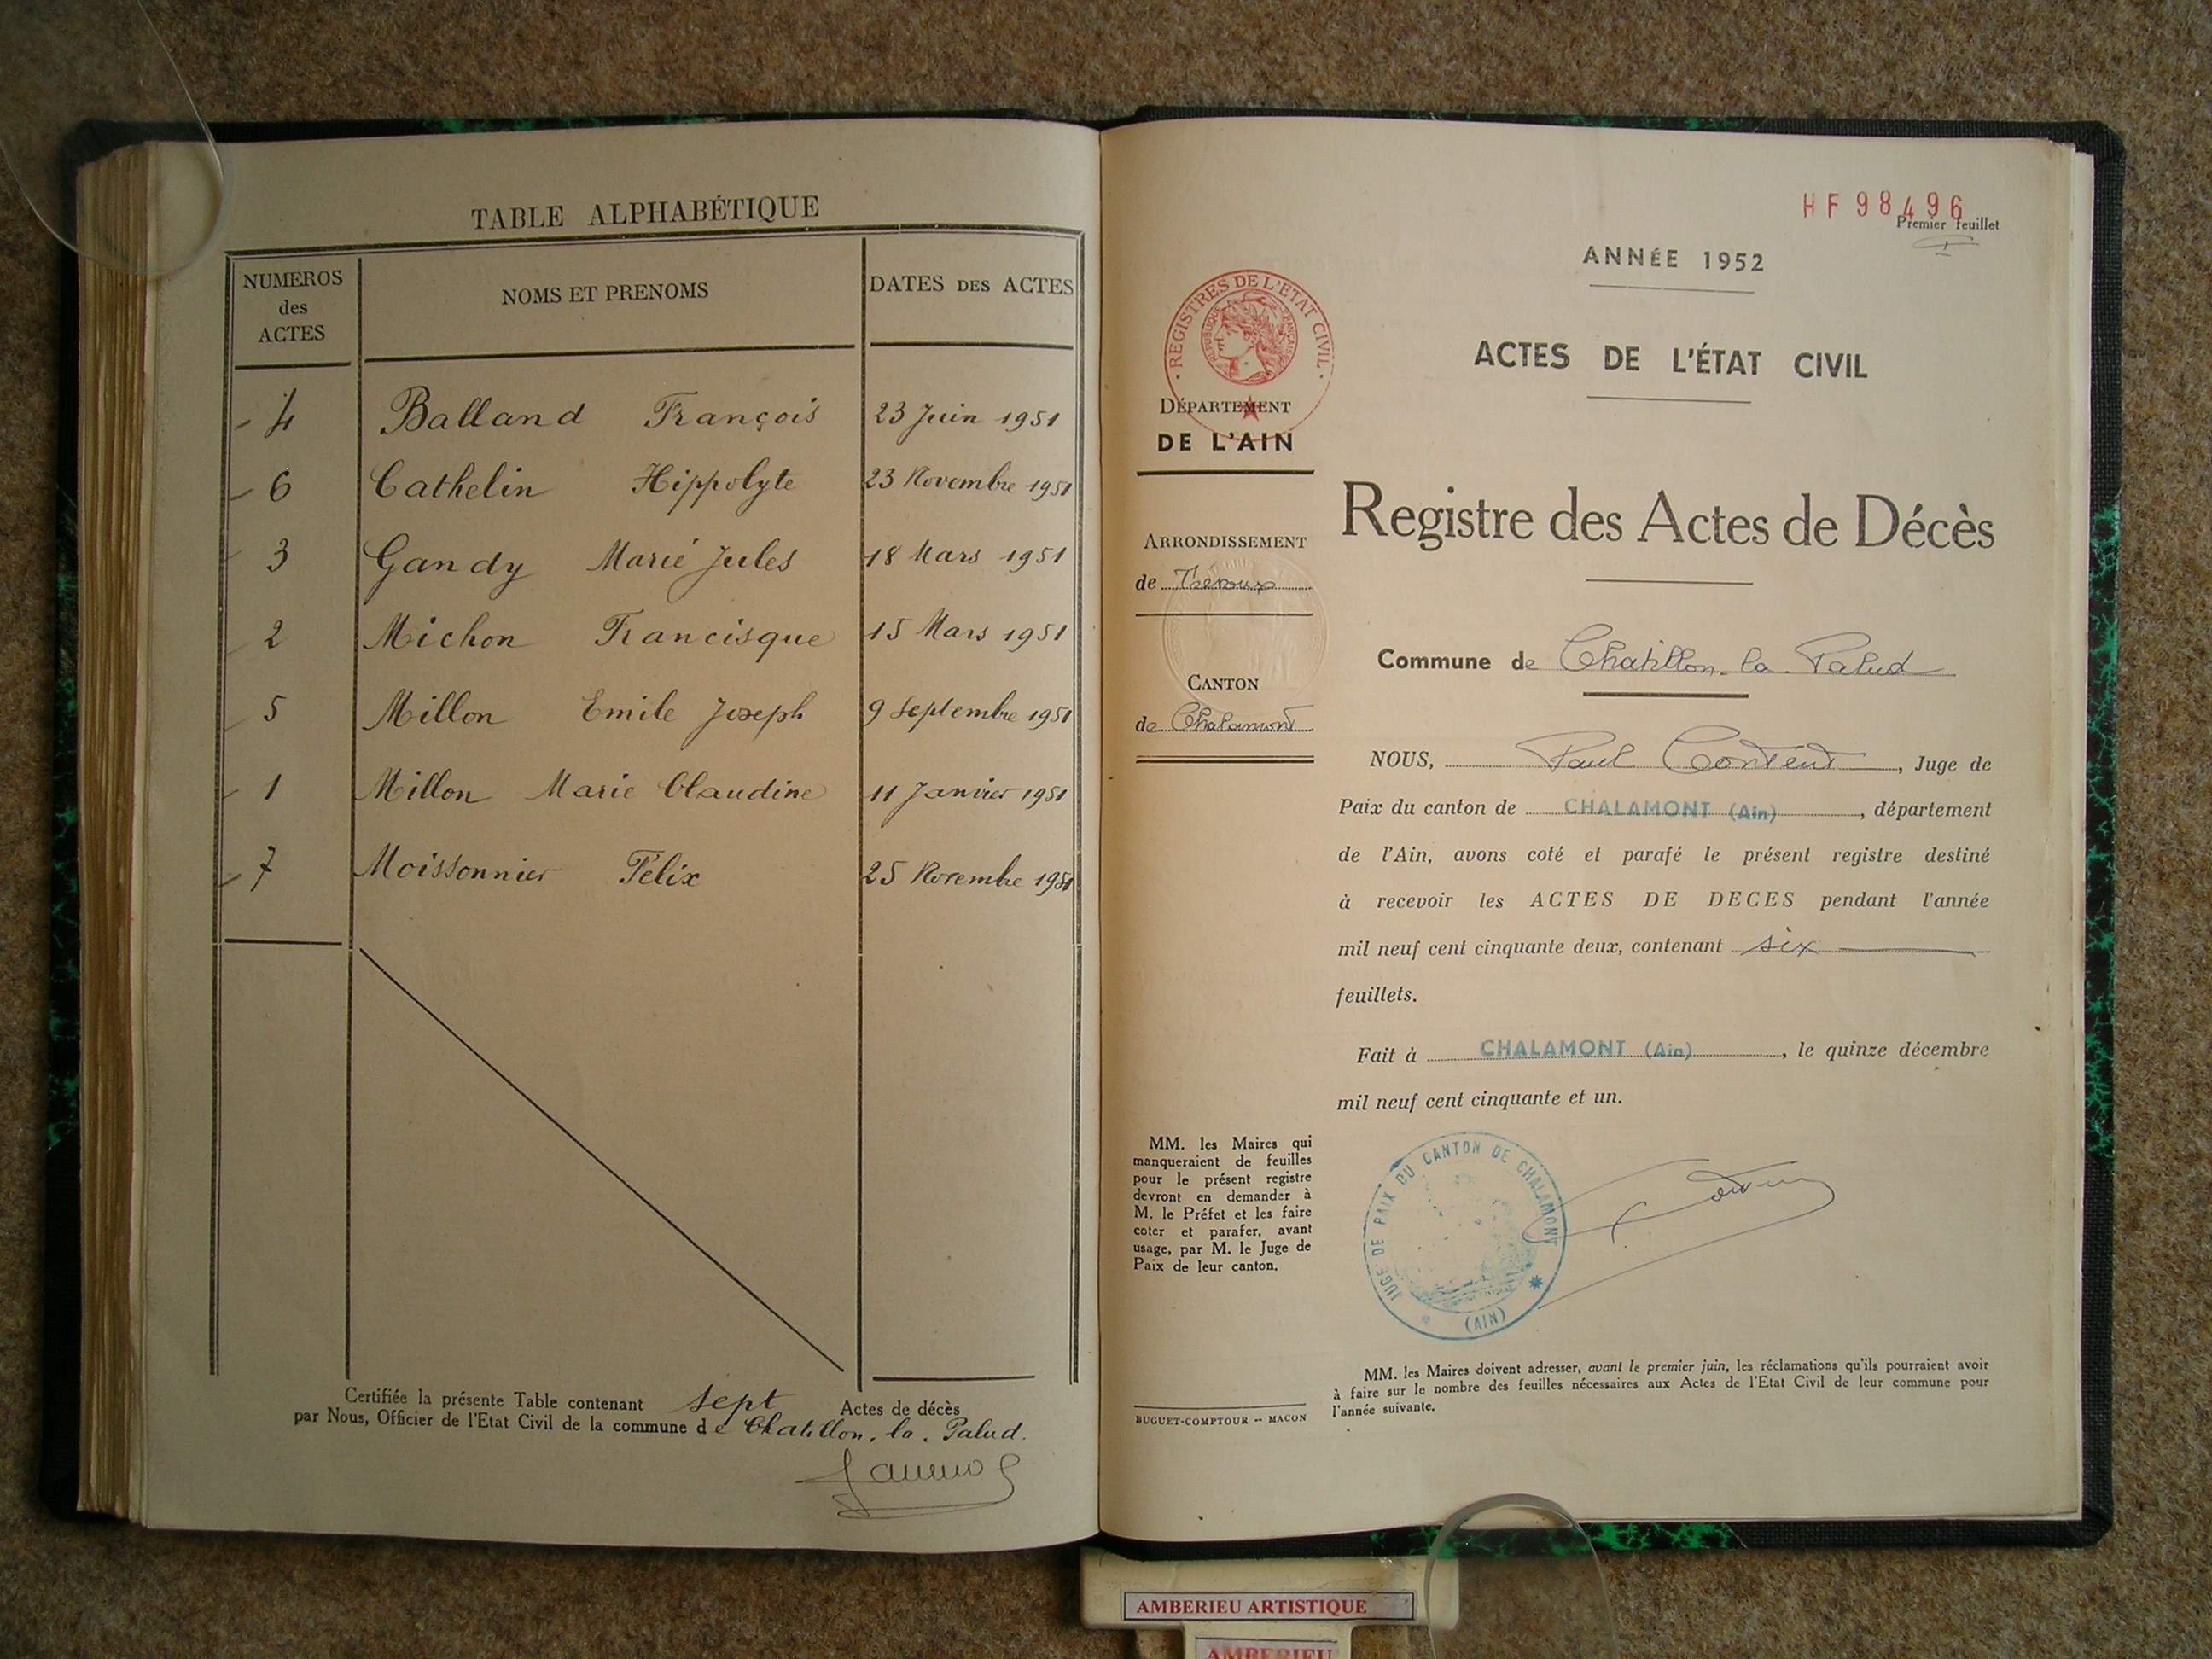 TABLE ALPHABÉTIQUE
NUMEROS des ACTES
NOMS ET PRENOMS
DATES DES ACTES
4 Balland François 23 Juin 1951
6 Cathelin Hippolyte 23 Novembre 1951
3 Gandy Marie Jules 18 Mars 1951
2 Michon Francisque 15 Mars 1951
5 Millon Emile Joseph 9 Septembre 1951
1 Millon Marie Claudine 11 Janvier 1951
7 Moissonnier Félix 25 Novembre 1951
Certifiée la présente Table contenant sept Actes de décès
par Nous, Officier de l'Etat Civil de la commune de Chatillon-la-Palud.
HF98496
Premier feuillet
ANNÉE 1952
ACTES DE L'ÉTAT CIVIL
REGISTRES DE L'ETAT CIVIL
REPUBLIQUE FRANÇAISE
DÉPARTEMENT
DE L'AIN
ARRONDISSEMENT
de Trevoux
CANTON
de Chalamont
Registre des Actes de Décès
Commune de Chatillon-la-Palud
NOUS, Paul , Juge de
Paix du canton de CHALAMONT (Ain), département
de l'Ain, avons coté et parafé le présent registre destiné
à recevoir les ACTES DE DECES pendant l'année
mil neuf cent cinquante deux, contenant six
feuillets.
Fait à CHALAMONT (Ain), le quinze décembre
mil neuf cent cinquante et un.
MM. les Maires qui
manqueraient de feuilles
pour le présent registre
devront en demander à
M. le Préfet et les faire
coter et parafer, avant
usage, par M. le Juge de
Paix de leur canton.
JUGE DE PAIX DU CANTON DE CHALAMONT
(AIN)
MM. les Maires doivent adresser, avant le premier juin, les réclamations qu'ils pourraient avoir
à faire sur le nombre des feuilles nécessaires aux Actes de l'Etat Civil de leur commune pour
l'année suivante.
BUGUET-COMPTOUR -- MACON
AMBERIEU ARTISTIQUE
AMBERIEU